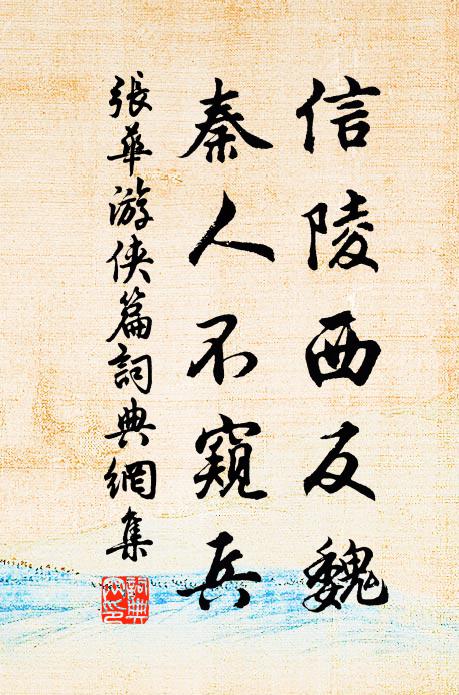 信陵西反魏
秦人不窺兵
張華游俠篇詞典網集